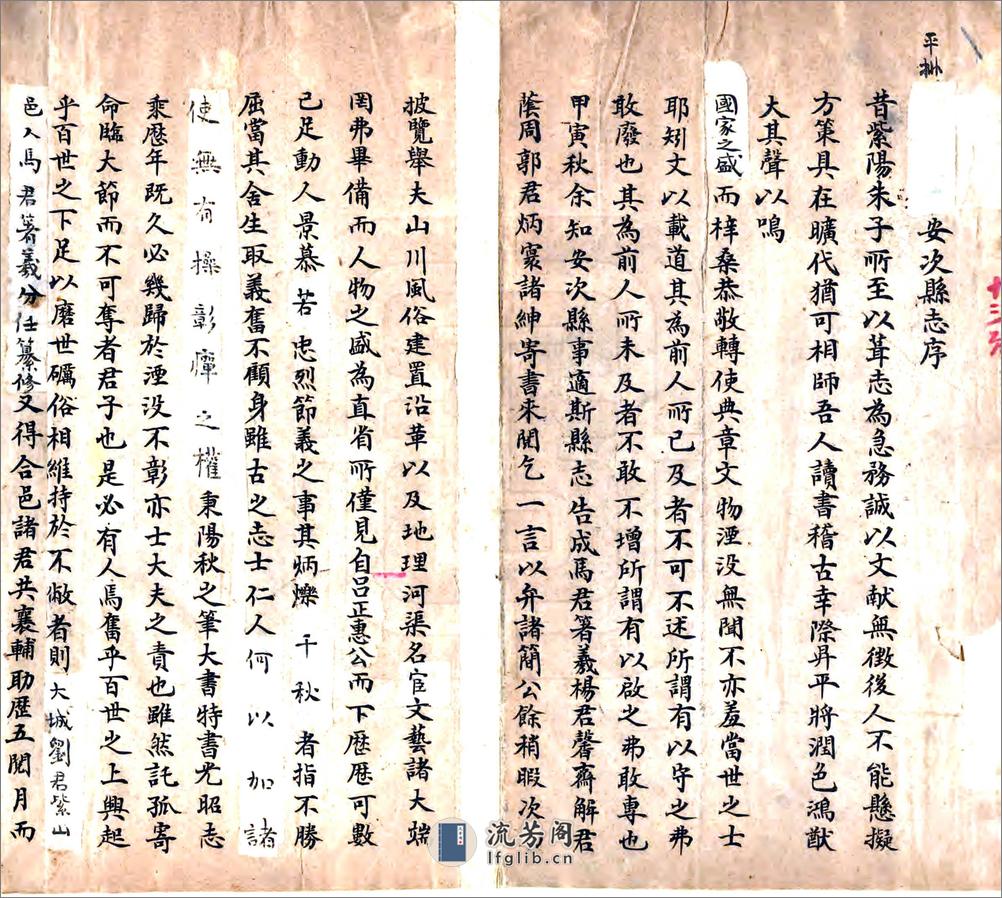 平拙
十三號
安次縣志序
昔紫陽朱子所至以葺志為急務誠以文献無徵後人不能懸擬
方策具在曠代猶可相師吾人讀書稽古幸際昇平將潤色鴻猷
大其聲以鳴
國家之盛而梓桑恭敬轉使典章文物湮没無聞不亦羞當世之士
耶矧文以載道其為前人所已及者不可不述所謂有以守之弗
敢廢也其為前人所未及者不敢不增所謂有以啟之弗敢專也
甲寅秋余知安次縣事適斯縣志告成馬君箸羲楊君馨齋解君
蔭周郭君炳寰諸紳寄書來閱乞一言以弁諸簡公餘稍暇次
披覽舉夫山川風俗建置沿革以及地理河渠名宦文藝諸大端
罔弗畢備而人物之盛為直省所僅見自呂正惠公而下歷歷可數
已足動人景慕若忠烈節義之事其炳爍千秋者指不勝
屈當其舍生取義奮不顧身雖古之志士仁人何以加諸
使無有操彰癉之權秉陽秋之筆大書特書光昭志
乘歷年既久必幾歸於湮没不彰亦士大夫之責也雖然託孤寄
命臨大節而不可奪者君子也是必有人焉奮乎百世之上興起
乎百世之下足以磨世礪俗相維持於不敝者則大城劉君紫山
邑人馬君箸羲分任纂修又得合邑諸君共襄輔助歷五閱月而
流芳阁
lfglib.cn